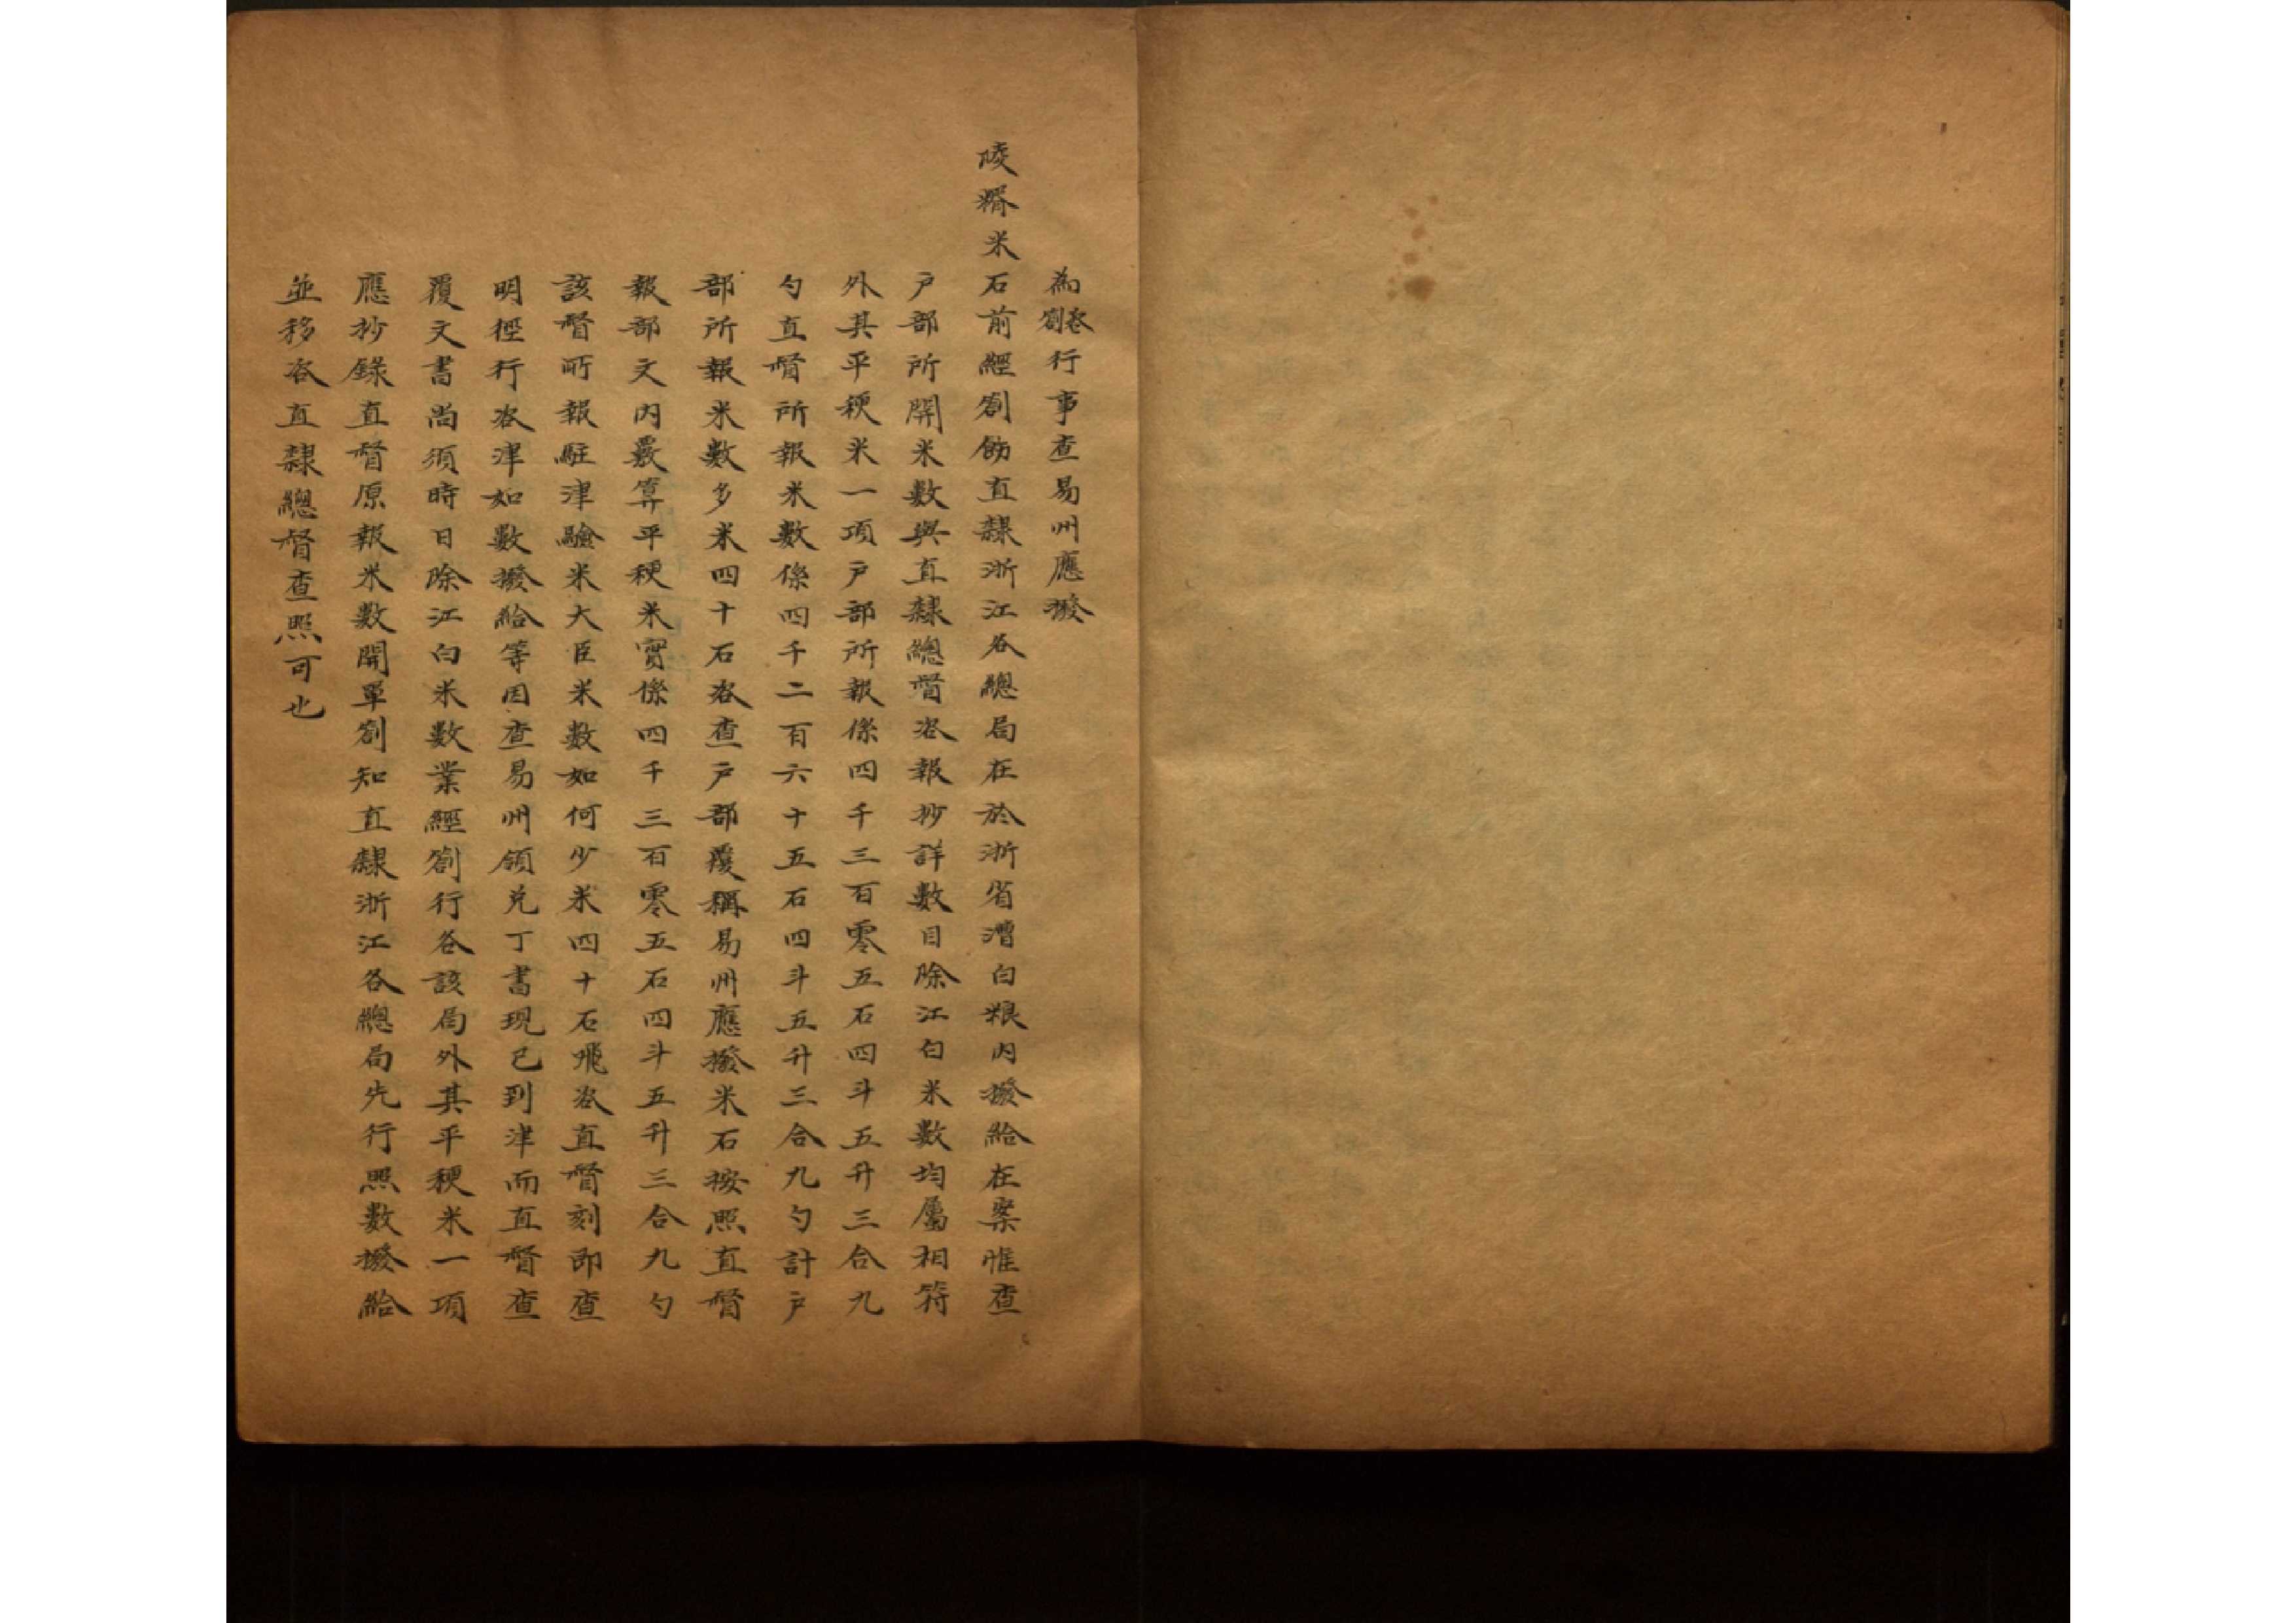 為咨劄行事查易州應撥
陵糈米石前經劄飭直隸浙江各總局在於浙省漕白粮内撥給在案惟查
户部所開米數與直隸總督咨報抄詳數目除江白米數均屬相符
外其平粳米一項户部所報係四千三百零五石四斗五升三合九
勺直督所報米數係四千二百六十五石四斗五升三合九勺計户
部所報米數多米四十石咨查户部覆稱易州應撥米石按照直督
報部文内覈算平粳米實係四千三百零五石四斗五升三合九勺
該督所報駐津驗米大臣米數如何少米四十石飛咨直督刻即查
明徑行咨津如數撥給等因查易州領兑丁書現已到津而直督查
覆文書尚須時日除江白米數業經劄行各該局外其平粳米一項
應抄錄直督原報米數開單劄知直隸浙江各總局先行照數撥給
並移咨直隸總督查照可也